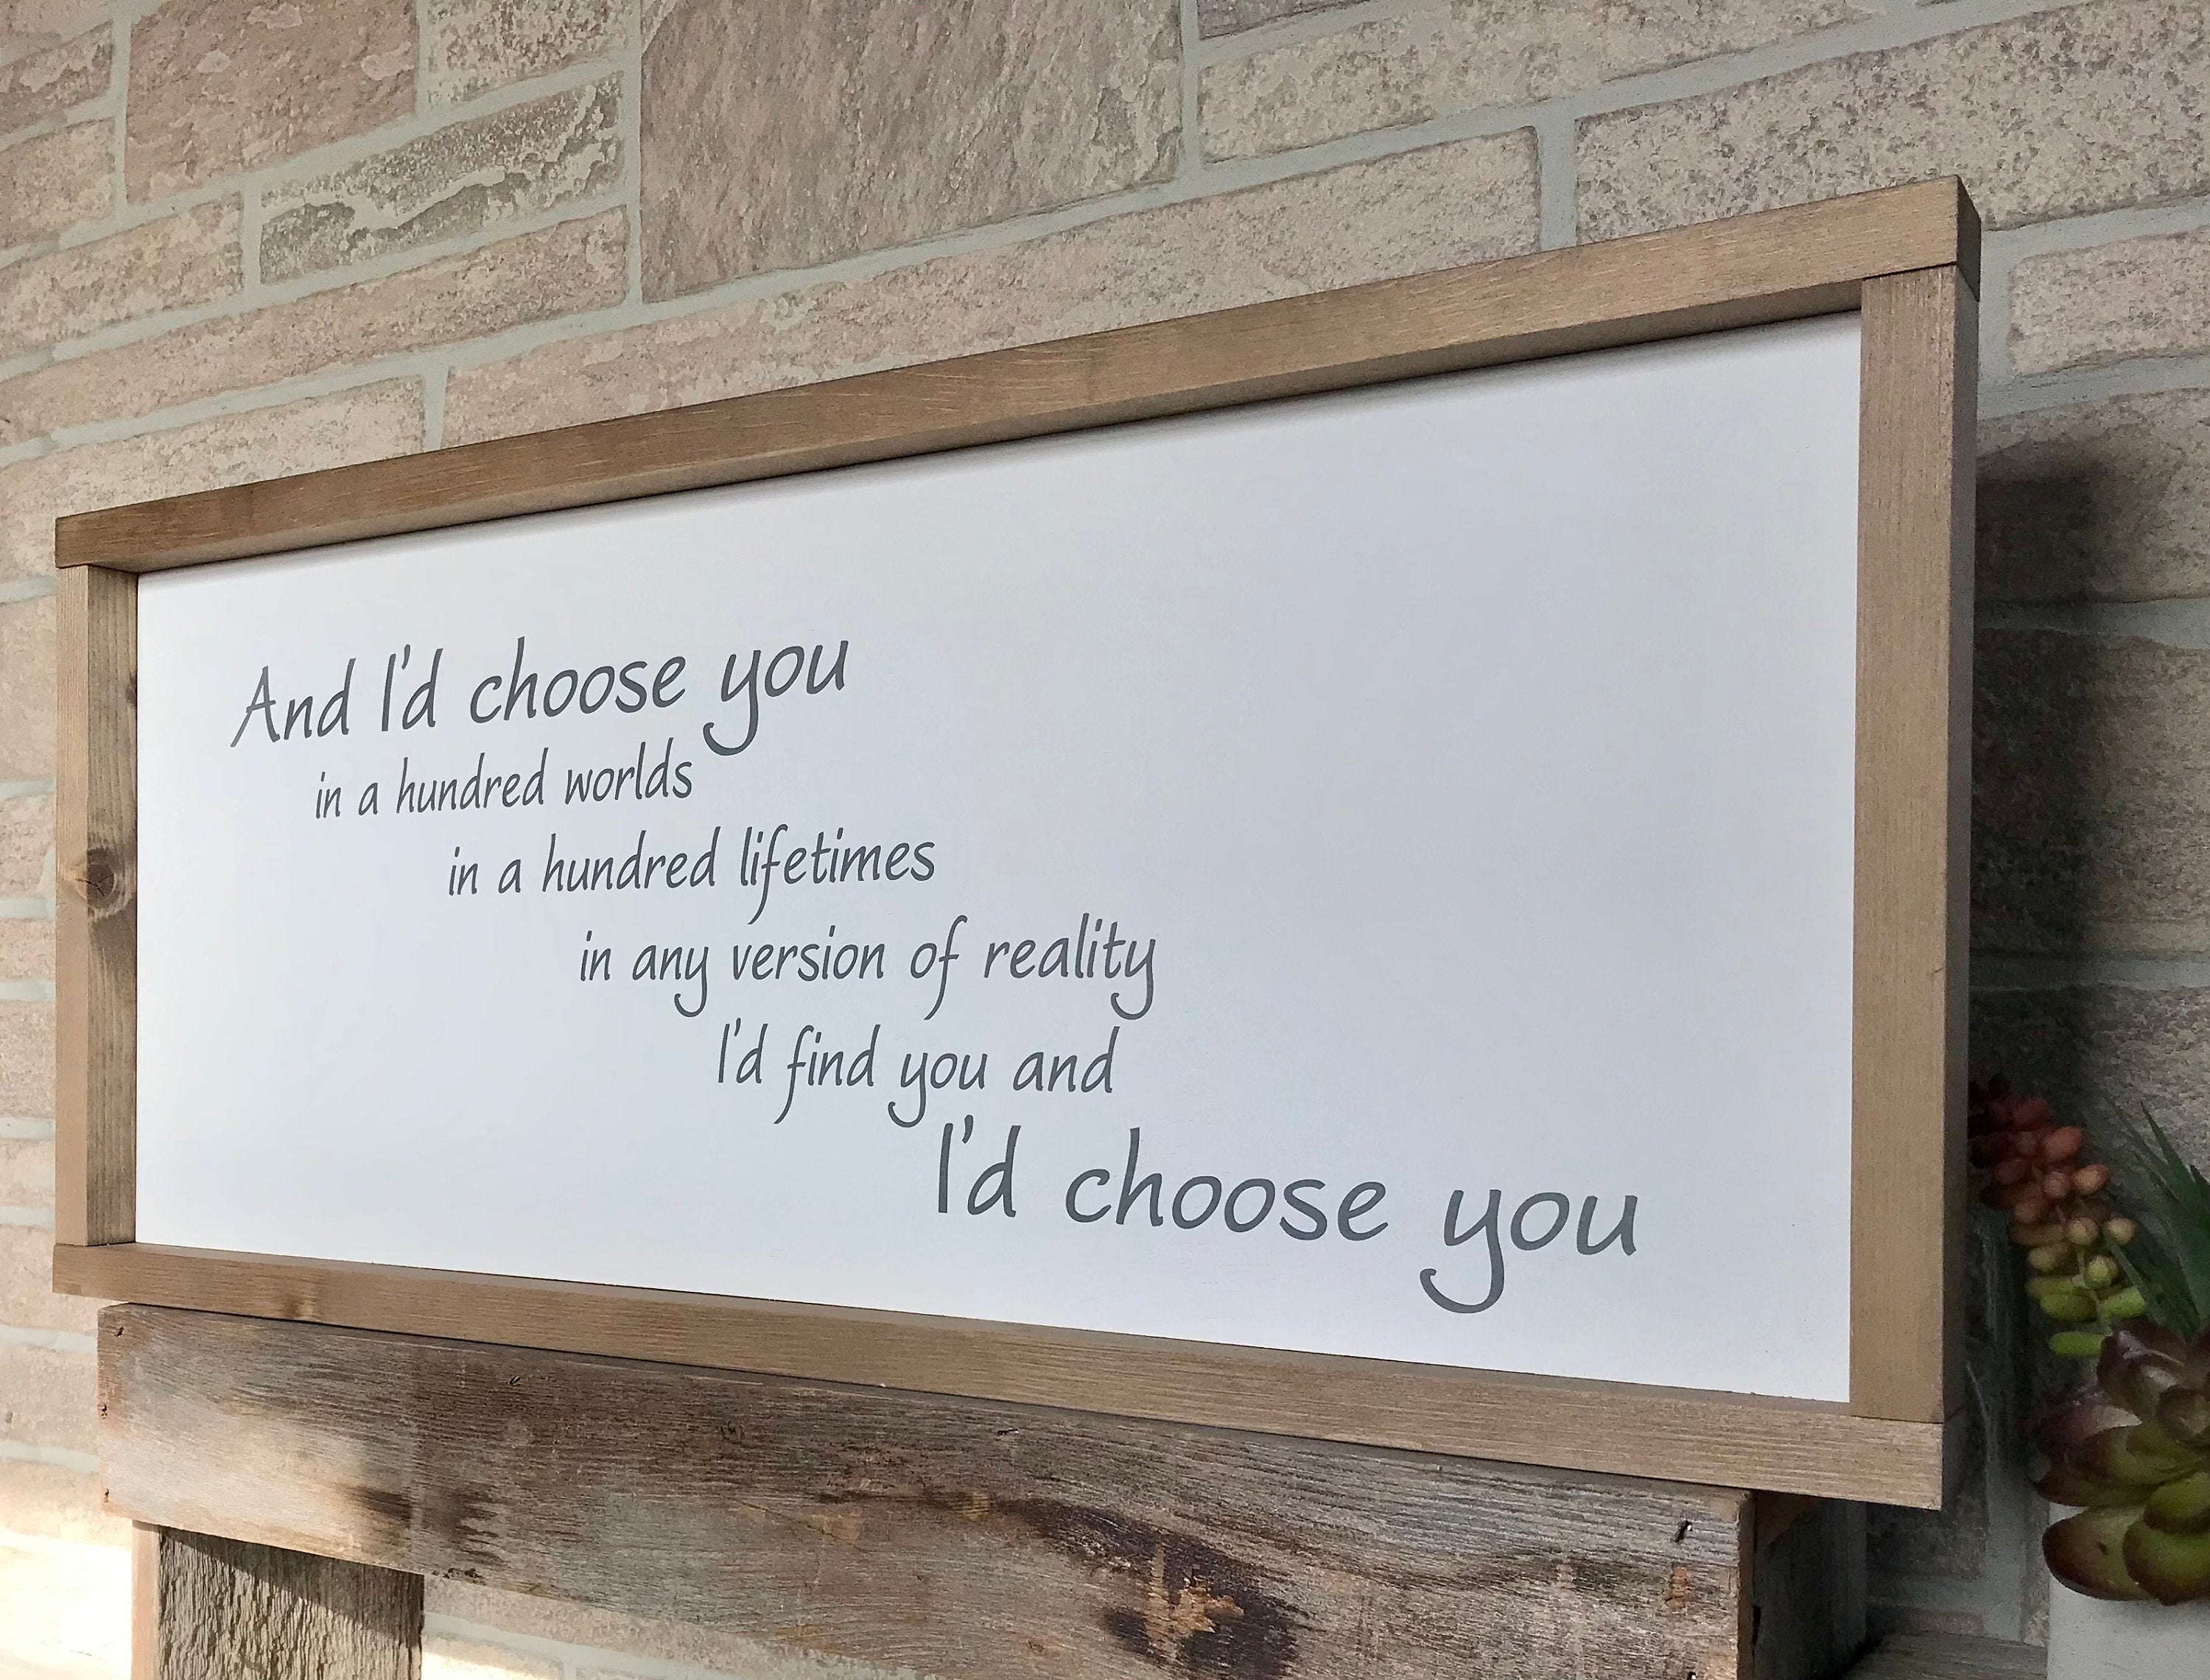 And I'd choose you
in a hundred worlds
in a hundred lifetimes
in any version of reality
I'd find you and
I'd choose you